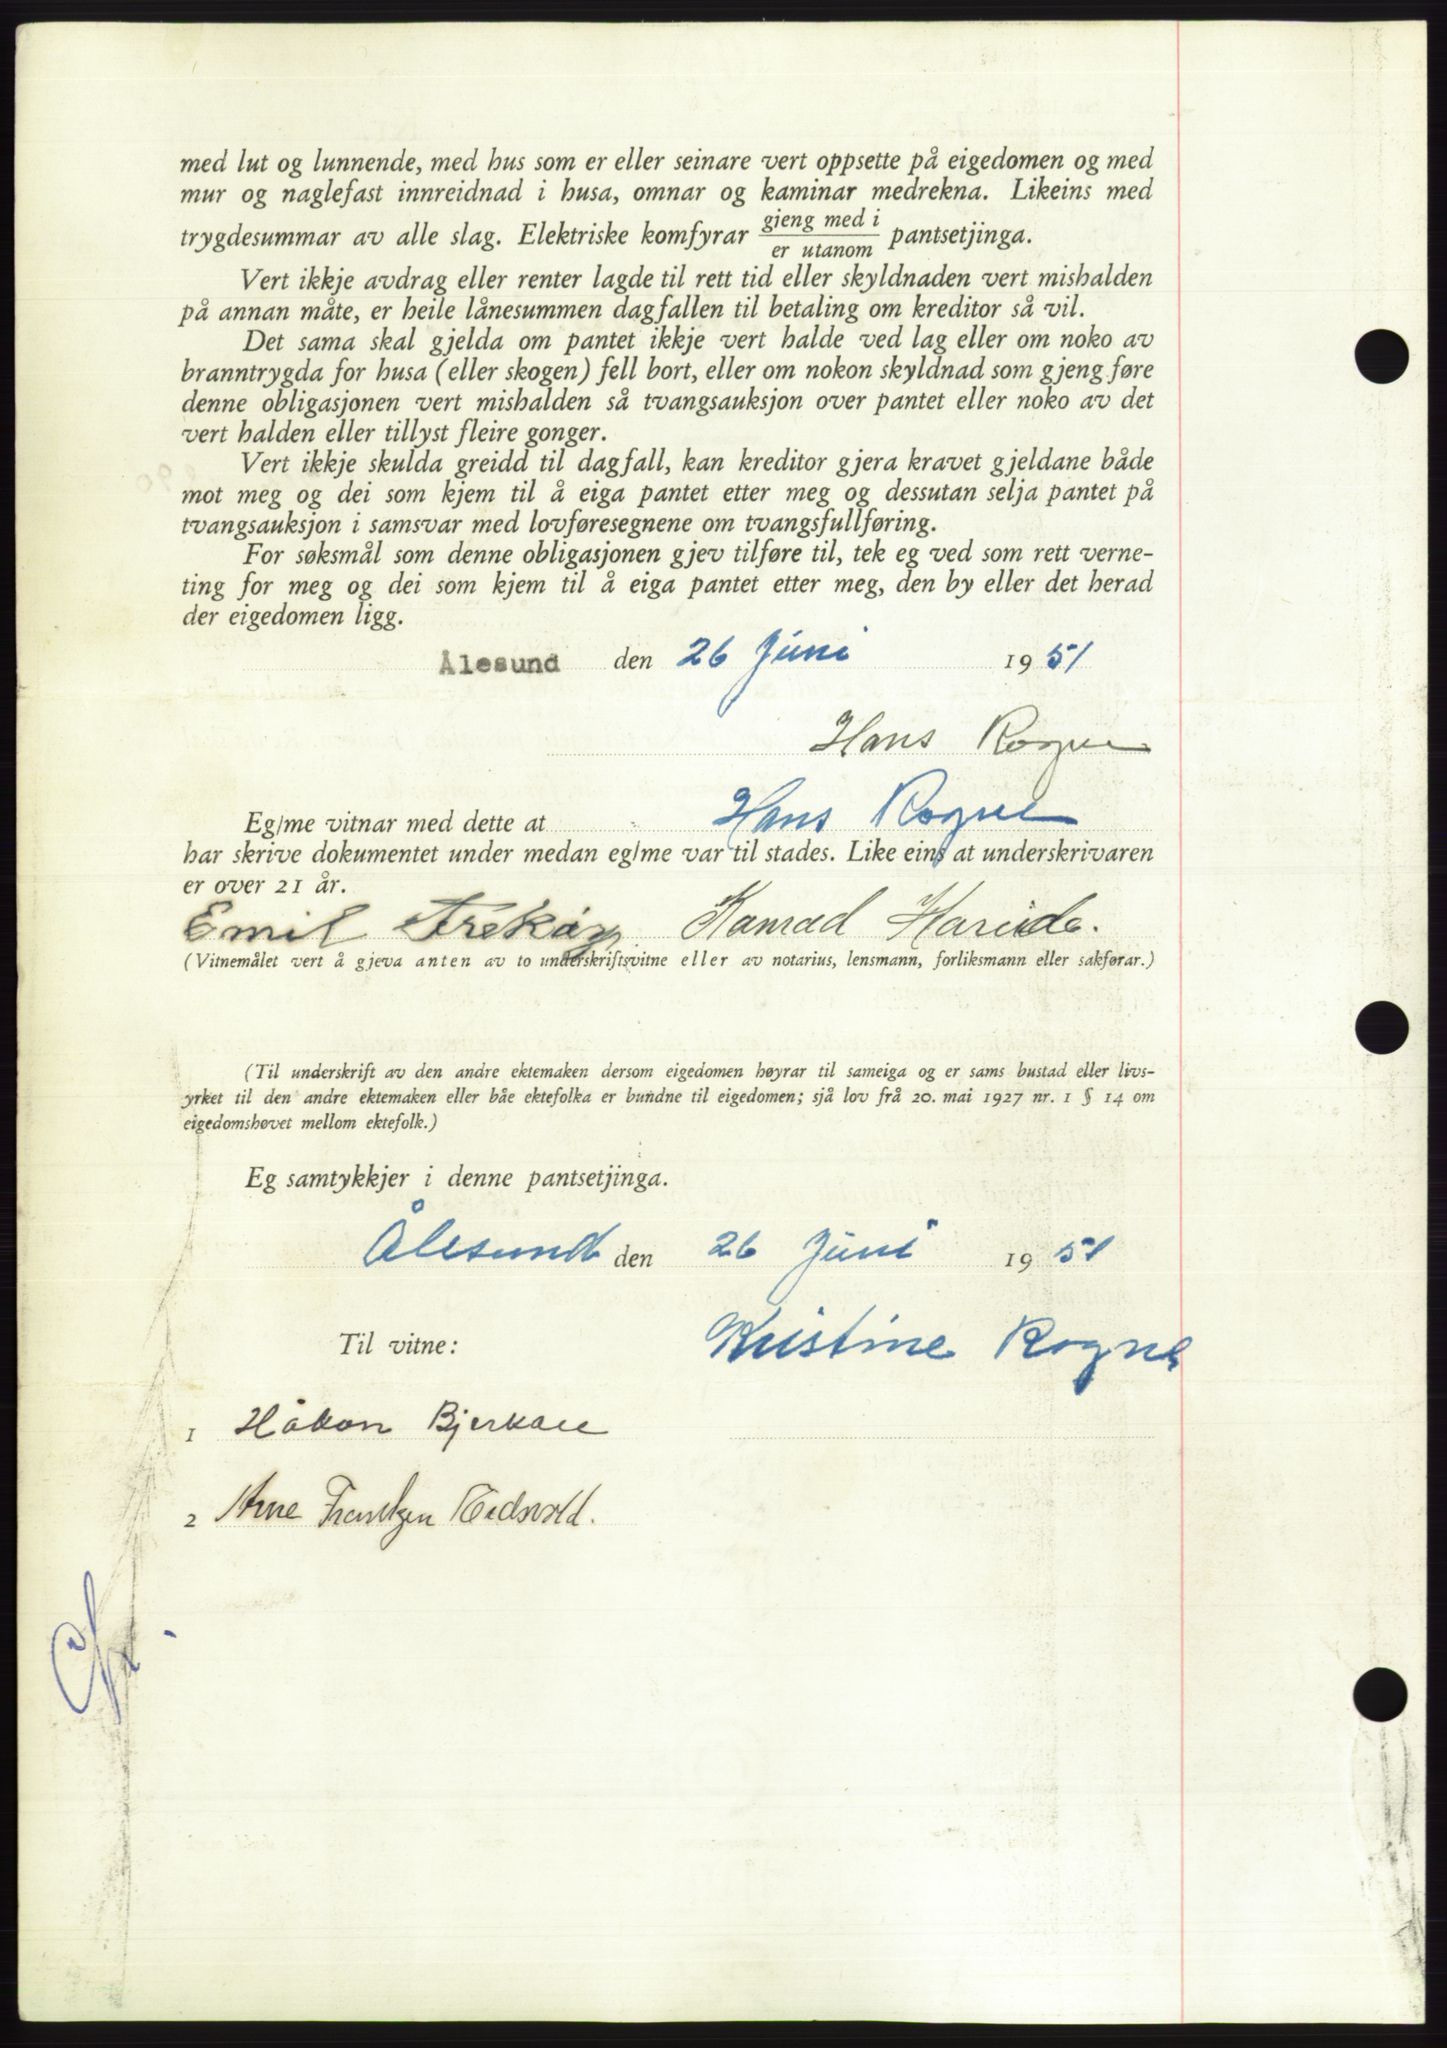 med lut og lunnende, med hus som er eller seinare vert oppsette på eigedomen og med
mur og naglefast innreidnad i husa, omnar og kaminar medrekna. Likeins med
trygdesummar av alle slag. Elektriske komfyrar gjeng med i / er utanom pantsetjinga.
Vert ikkje avdrag eller renter lagde til rett tid eller skyldnaden vert mishalden
på annan måte, er heile lånesummen dagfallen til betaling om kreditor så vil.
Det sama skal gjelda om pantet ikkje vert halde ved lag eller om noko av
branntrygda for husa (eller skogen) fell bort, eller om nokon skyldnad som gjeng føre
denne obligasjonen vert mishalden så tvangsauksjon over pantet eller noko av det
vert halden eller tillyst fleire gonger.
Vert ikkje skulda greidd til dagfall, kan kreditor gjera kravet gjeldane både
mot meg og dei som kjem til å eiga pantet etter meg og dessutan selja pantet på
tvangsauksjon i samsvar med lovføresegnene om tvangsfullføring.
For søksmål som denne obligasjonen gjev tilføre til, tek eg ved som rett verne-
ting for meg og dei som kjem til å eiga pantet etter meg, den by eller det herad
der eigedomen ligg.
Ålesund den 26 Juni 1951
Hans Rogne
Eg/me vitnar med dette at Hans Rogne
har skrive dokumentet under medan eg/me var til stades. Like eins at underskrivaren
er over 21 år.
Emil Konrad Hareide.
(Vitnemålet vert å gjeva anten av to underskriftsvitne eller av notarius, lensmann, forliksmann eller sakførar.)
(Til underskrift av den andre ektemaken dersom eigedomen høyrar til sameiga og er sams bustad eller livs-
yrket til den andre ektemaken eller båe ektefolka er bundne til eigedomen; sjå lov frå 20. mai 1927 nr. 1 § 14 om
eigedomshøvet mellom ektefolk.)
Eg samtykkjer i denne pantsetjinga.
Ålesund den 26 Juni 1951
Til vitne: Kristine Rogne
1 Håkon Bjerkan
2 Arne